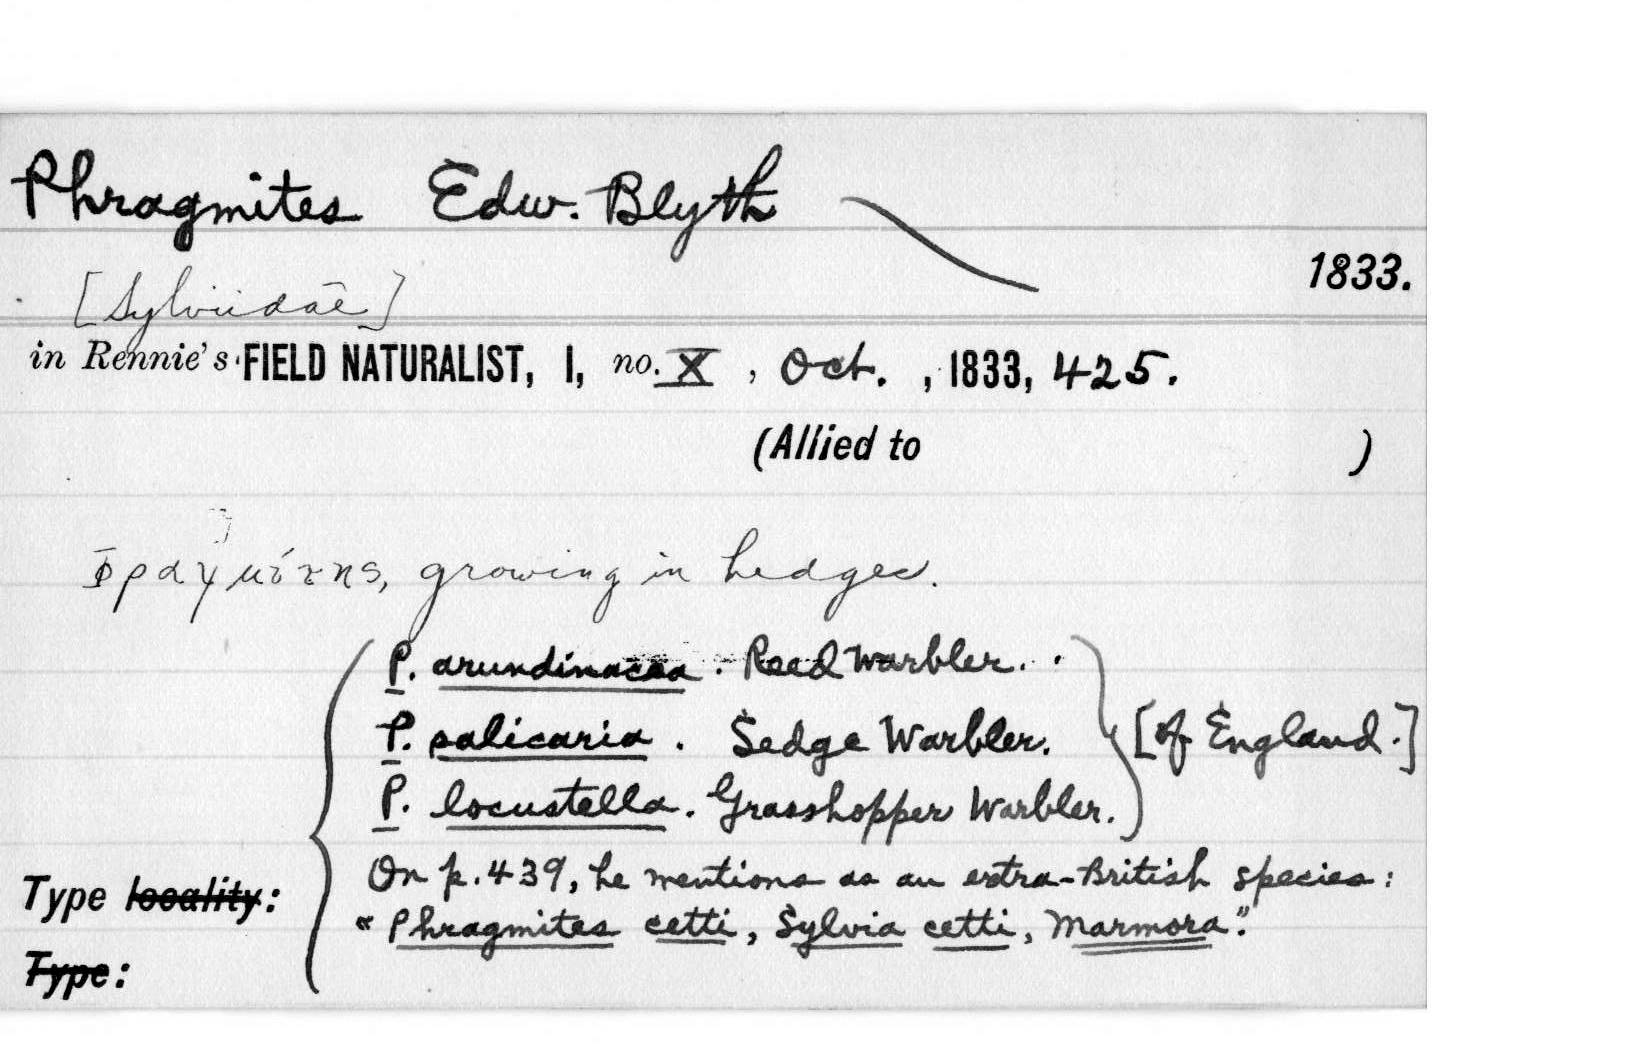 Phragmites Edw. Blyth
1833.
[Sylviidae]
in Rennie's FIELD NATURALIST, I, no. X, Oct., 1833, 425.
(Allied to )
Φραγμίτης, growing in hedges.
P. arundinacea. Reed Warbler.
P. salicaria. Sedge Warbler. [of England.]
P. locustella. Grasshopper Warbler.
On p. 439, he mentions as an extra-British species:
Type locality:
"Phragmites cetti, Sylvia cetti, Marmora".
Type: